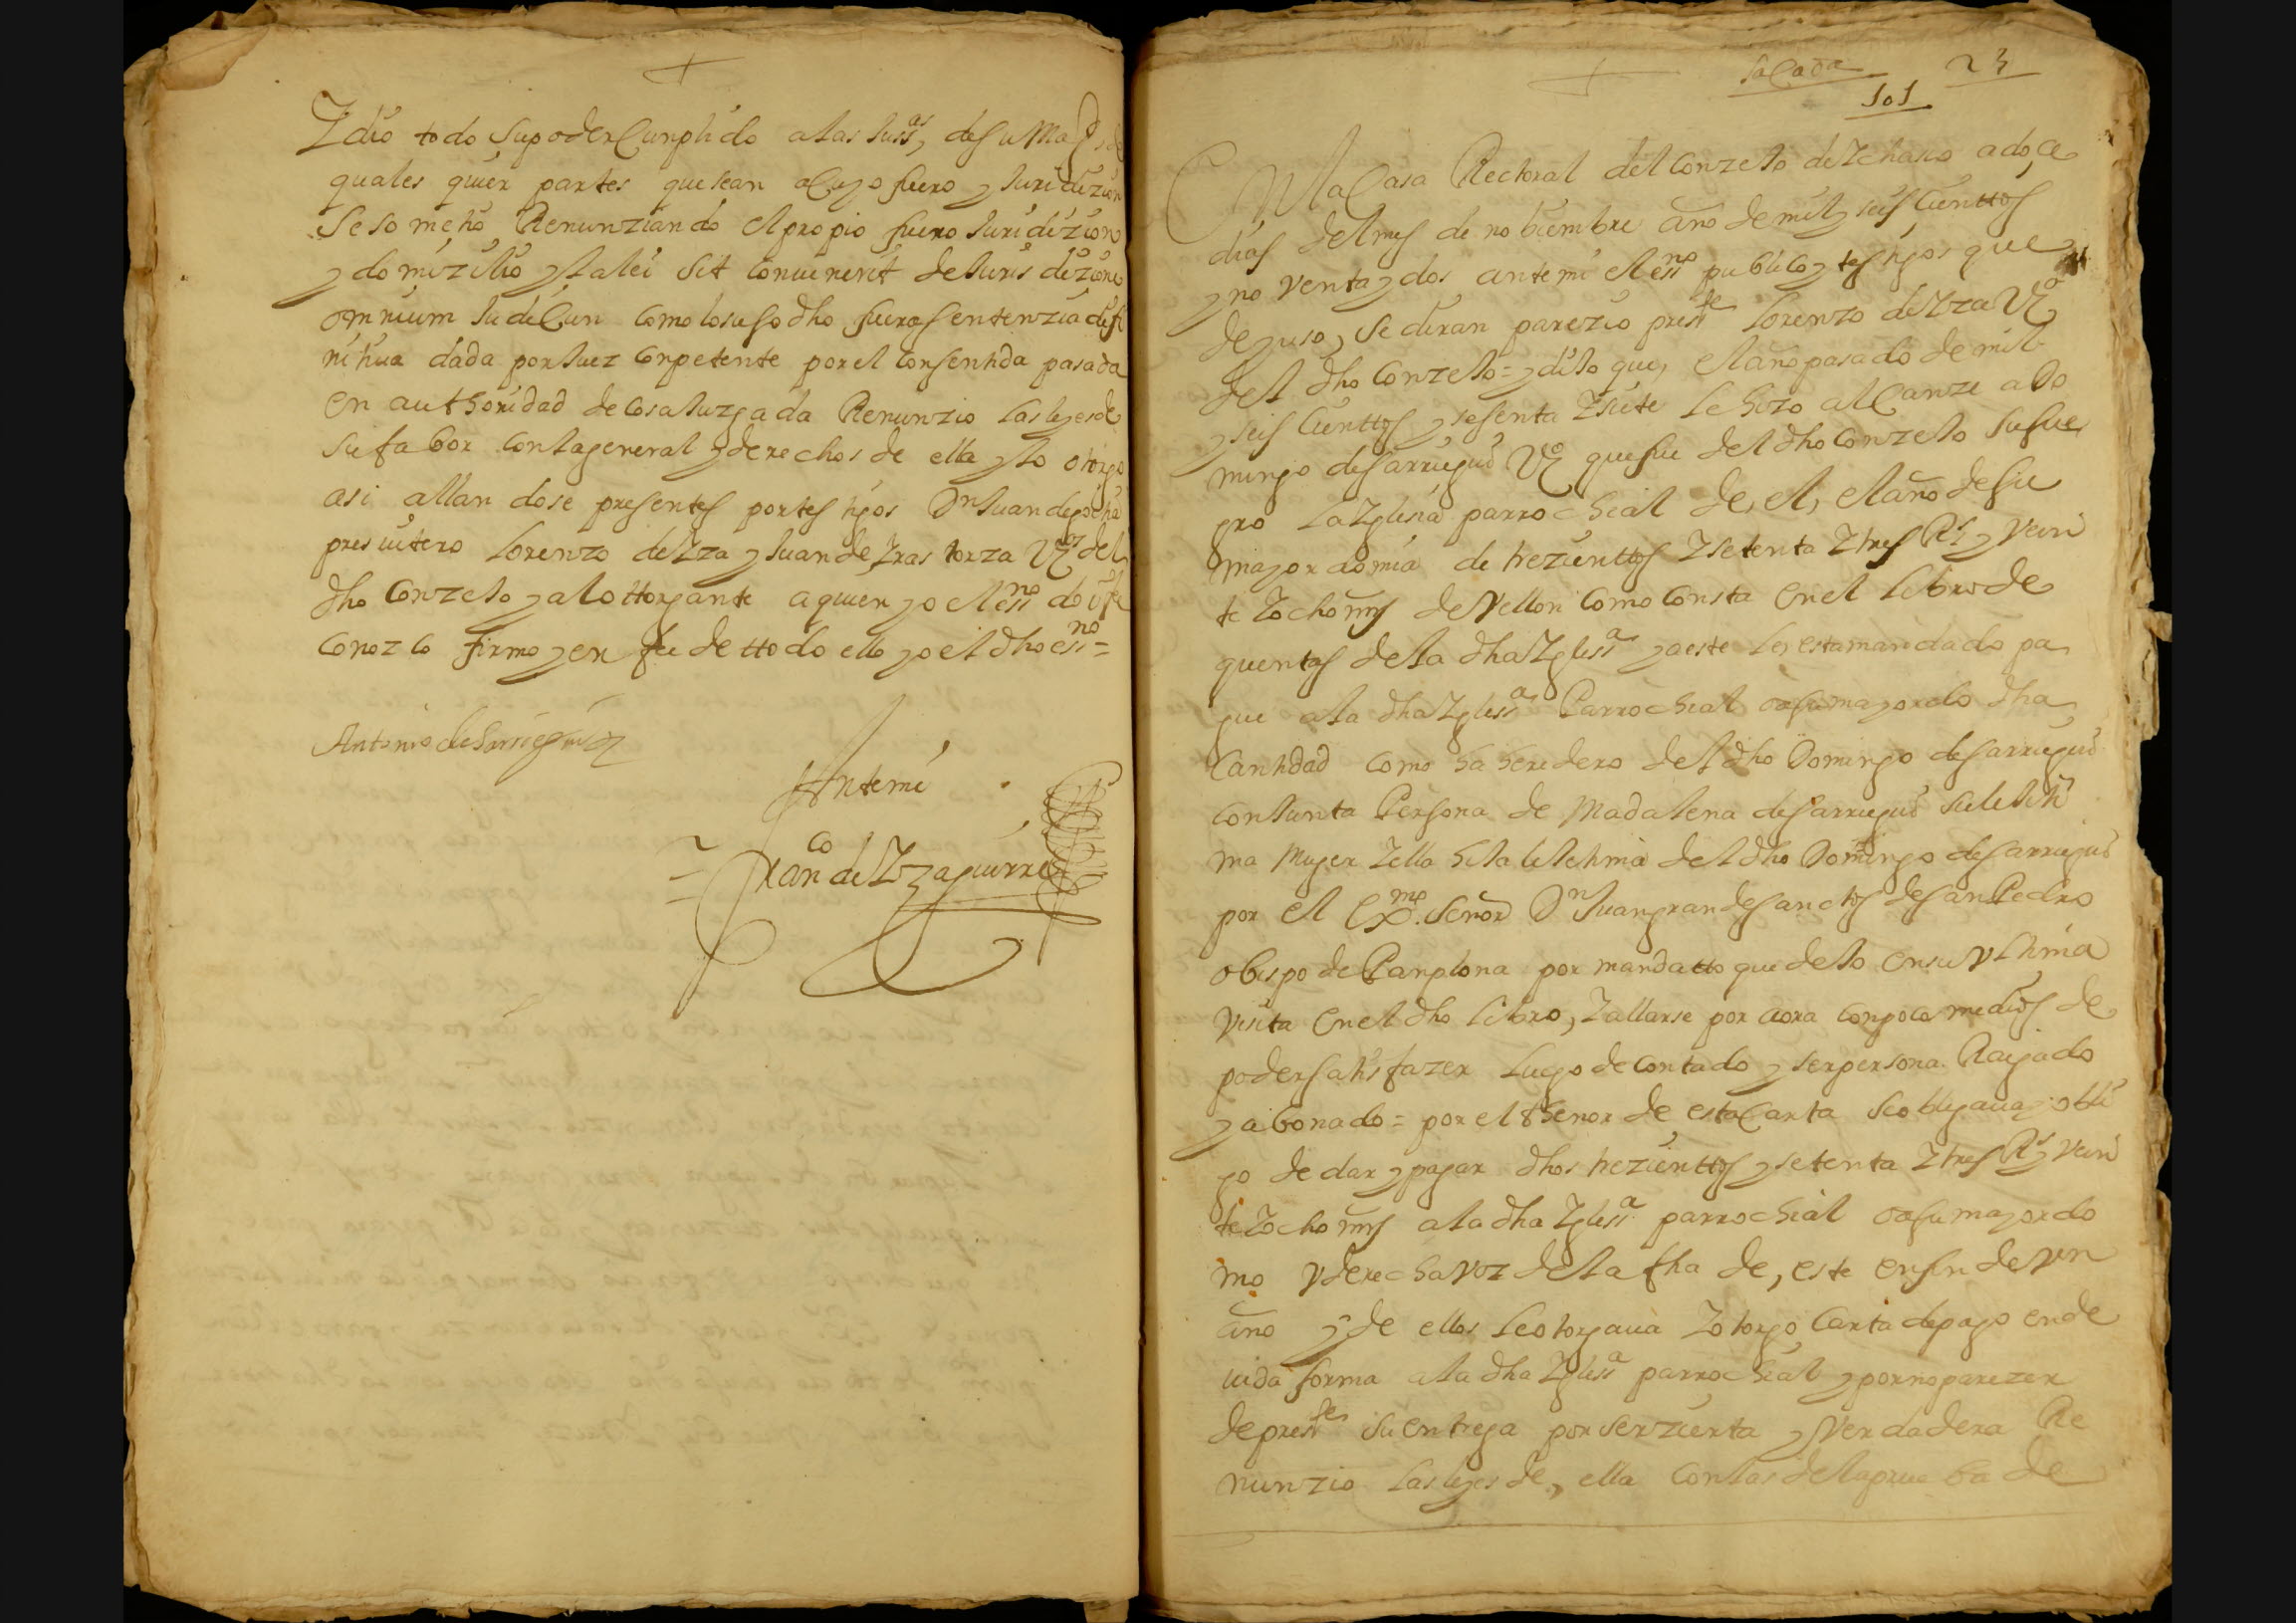 +
Y dio todo su poder Cunplido a las Juss.as de su Mag.d de
quales quier partes que sean a Cuyo fuero y Juridizion
Se sometio Renunziando el propio fuero Juridizion
y domizilio y la lei sit convenerit de Jurisdizione
omnium Judicun como lo suso dho fuera sentenzia difi
nitiua dada por Juez Conpetente por el Consentida pasada
en authoridad de cosa Juzgada Renunzio las leyes de
su fabor con la general y derechos de ella y lo otorgo
asi allandose presentes por testigos Dn Juan de
presuitero Lorenzo de Yza y Juan de Yrastorza Vz.os del
dho Conzejo y al ottorgante a quien yo el ess.no doi fe
Conozco firmo y en fee de ttodo ello yo el dho ess.no =
Antonio de Sarriegui
Ante mi
Fran.co de Yzaguirre
+
sacada
23
101
En la Casa Rectoral del Conzejo de Ychaso a doçe
dias del mes de nobiembre año de mil y seis Cienttos
y noventa y dos ante mi el ess.no publico y testigos que
de yuso, se diran parezio press.te Lorenzo de Yza Vz.o
del dho Conzejo = y dijo que, el año pasado de mil
y seis Cienttos y sesenta Y siete le hizo alCanze a Do
mingo de Sarriegui Vz.o que fue del dho Conzejo su sue
gro la Yglesia parrochial de, el, el año de su
mayordomia de trezienttos Y setenta Y tres Rs y vein
te Y ocho mrs de Vellon Como Consta en el Libro de
quentas de la dha Ygless.a y a este le esta mandado pa
gue a la dha Ygless.a Parrochial o a su mayordo dha
Cantidad Como ha heredero del dho Domingo de Sarriegui
Conjunta Persona de Madalena de Sarriegui su lejiti
ma Muger Y ella hija lejetima del dho Domingo de Sarriegui
por el Ex.mo Señor Dn Juan grande Sanctos de San Pedro
obispo de Panplona por mandatto que dejo en su Vltima
Visita en el dho Libro, Y allarse por aora con pocos medios de
poder satisfazer luego de Contado y ser persona Raigado
y abonado = por el thenor de esta Carta se obligaua y obli
go de dar y pagar dhos trezienttos y setenta Y tres Rs y vein
te Y ocho mrs a la dha Ygless.a parrochial o a su mayordo
mo y derecha voz de la fha de, este en fin de vn
año y de ellos le otorgaua Y otorgo Carta de pago en de
uida forma a la dha Ygless.a parrochial y por no parezer
de press.te su entrega por ser zierta y Verdadera Re
nunzio las leyes de, ella Con las de la prueba de